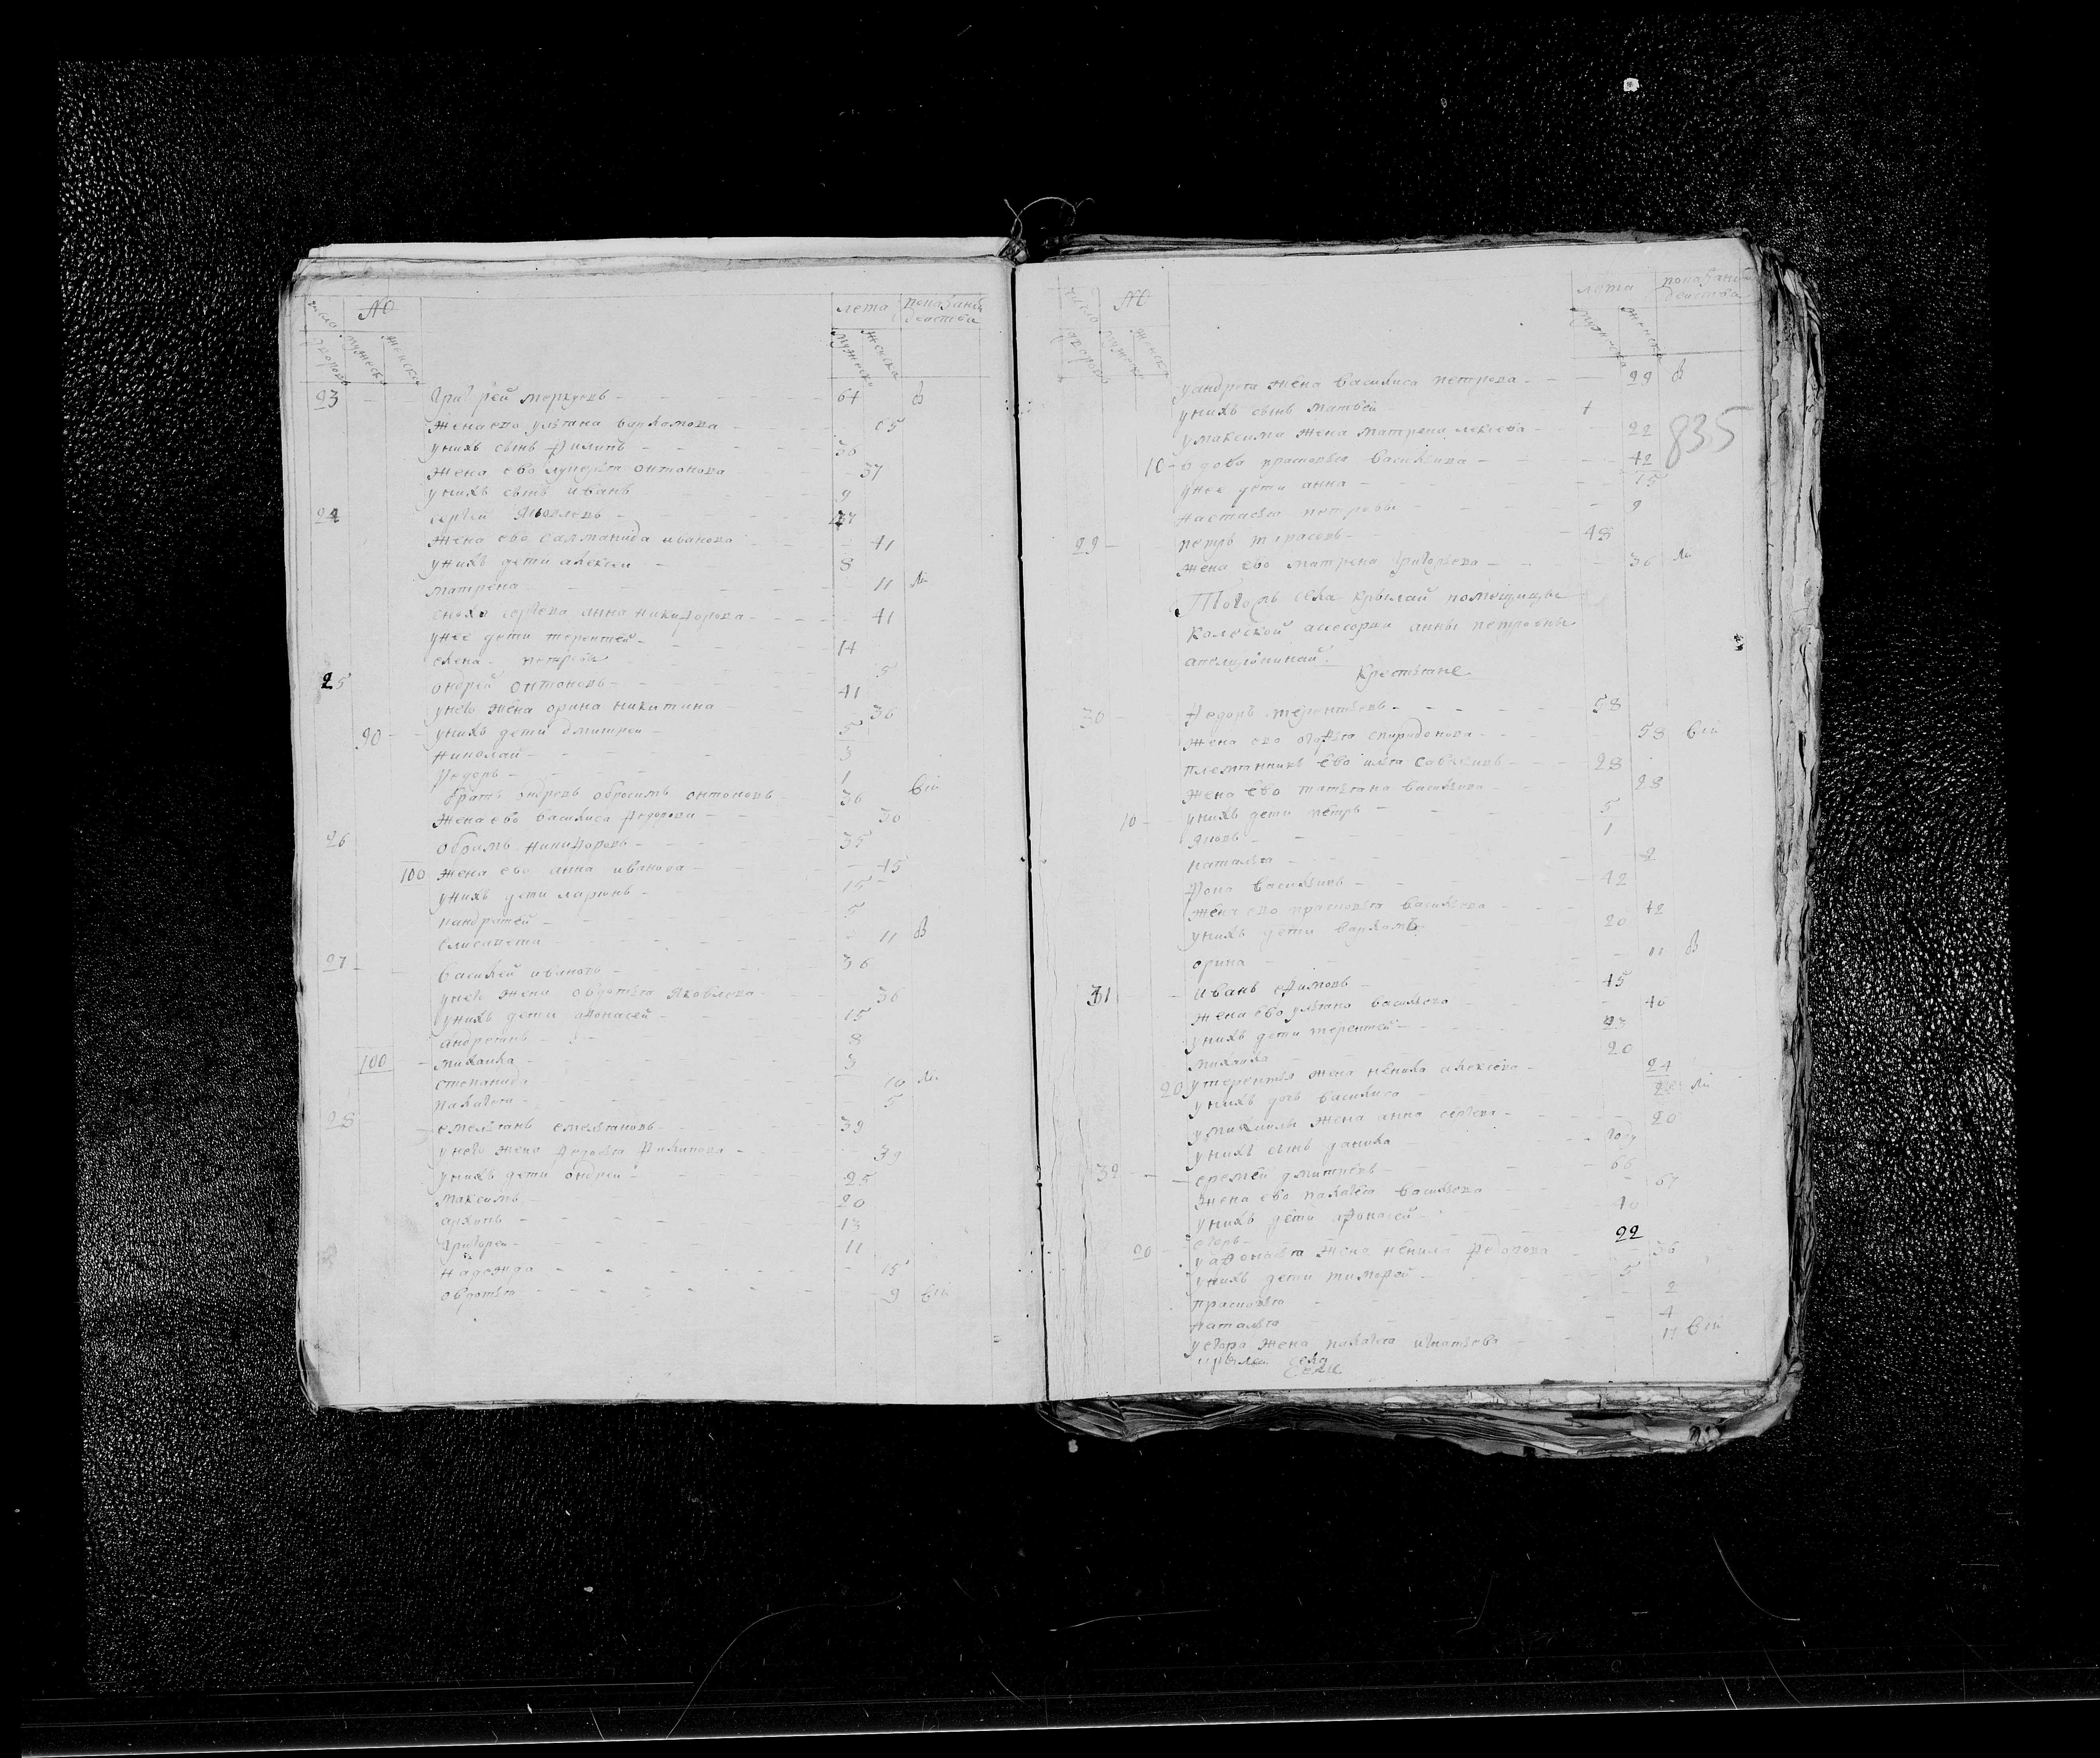 число дворовъ № мужеска женска лета мужеска женска показание действа
23 Григорей меркуевъ 64 в
жена ево улѣяна варламова 65
у нихъ сынъ филипъ 30
жена ево лукерѣя онтонова 37
у нихъ сынъ иванъ 9
24 сергей яковлевъ
жена ево саламанида иванова 41
у нихъ дети алексеи 8
матрена 11
сноха анна никифорова 41
у нее дети терентей 14
елена петровы 5
25 ондрей онтоновъ 41
у него жена орина никитина 36
90 у нихъ дети дмитрей 5
николай 3
федоръ 1
братъ ондревъ обросимъ онтоновъ 36
жена ево василиса федорова 30
26 никифоровъ 35
100 жена ево анна иванова 45
у нихъ дети ларионъ 15
кандратей 5
елисавета 11 в
27 василей ивановъ 36
у него жена овдотѣя яковлева 36
у нихъ дети афонасей 15
андреянъ 8
100 михаила 3
степанида 10
палагея 5
28 емелѣянъ емелѣяновъ 39
у него жена федосѣя филипова 39
у нихъ дети ондрей 25
максимъ 20
архипъ 13
григорей 11
надежда 15
овдотѣя 9
число дворовъ № мужеска женска лета мужеска женска показание действа
у андрея жена василиса петрова 29 в
у нихъ сынъ матвей
у максима жена матрена алексеева 22
835
10 вдова прасковѣя василѣева 42
у нее дети анна 15
настасѣя петровы 9
29 петръ тарасовъ 48
жена ево матрена григорѣева 36
Тогожъ села крылай помѣщицы
колеской асесорши анны петровны
крестѣяне
30 федоръ терентѣевъ 58
жена ево огафѣя спиридонова 58
племянникъ ево илѣя савелѣевъ 28
жена ево татѣяна василѣева 28
10 у нихъ дети петръ 5
яковъ 1
наталѣя 2
фома василѣевъ 42
жена ево прасковѣя василѣева 42
у нихъ дети варламъ 20
орина 11 в
31 иванъ ефимовъ 45
жена ево улѣяна василѣева 40
у нихъ дети терентей 23
михаила 20
20 у терентѣя жена ненила алексеева 24
у нихъ дочь василиса
у михаилы жена анна сергеева 20
у нихъ сынъ данила году
32 еремей дмитревъ 66
жена ево палагея василѣева 67
у нихъ дети афонасей 40
егоръ 22
20 у афонасѣя жена ненила федорова 36
у нихъ дети тимофей 5
прасковѣя 2
наталѣя 4
у егора жена палагея игнатѣева 17
села
села